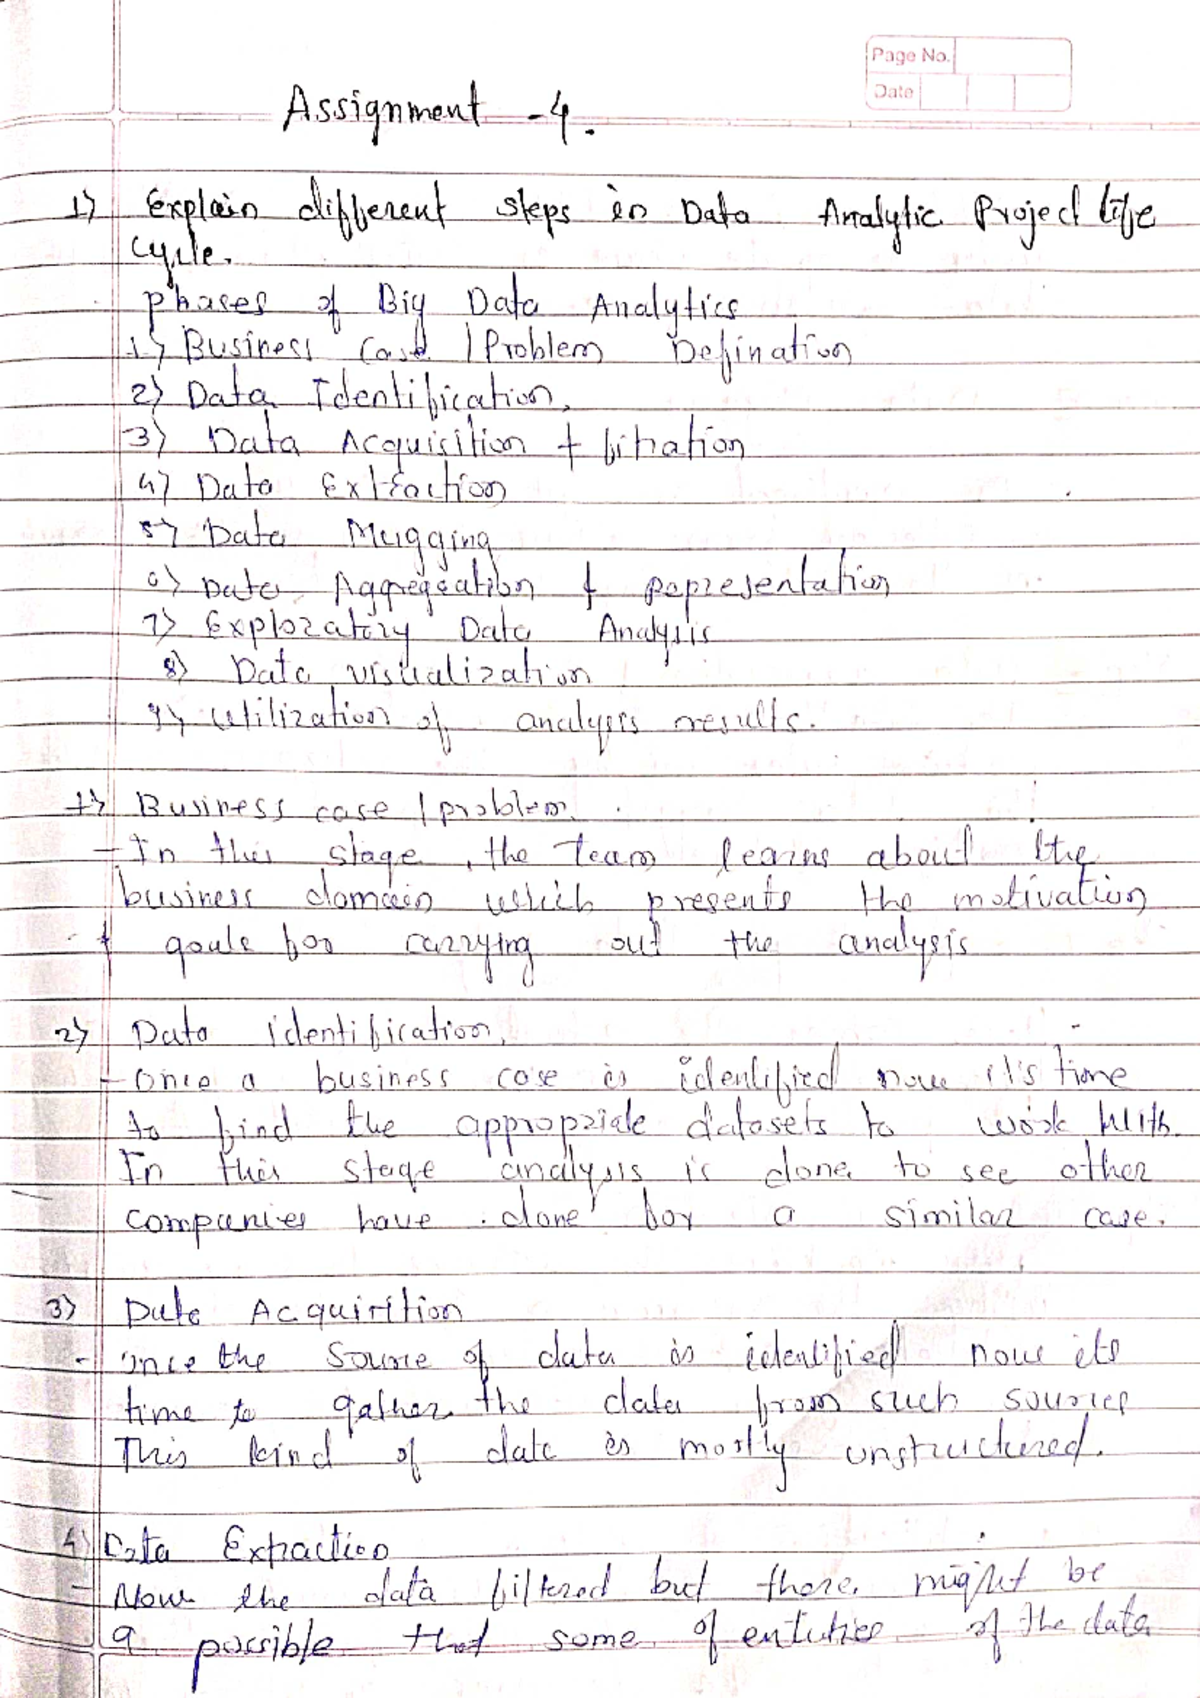 Page No.
Date
Assignment -4.
1) Explain different steps in Data Analytic Project life
Cycle.
Phases of Big Data Analytics
1) Business Case / Problem Defination
2) Data Identification,
3) Data Acquisition & filtration
4) Data Extraction
5) Data Mugging
6) Data Aggregation & Representation
7) Exploratory Data Analysis
8) Data visualization
9) utilization of analysis results.
1) Business case / problem.
- In this stage, the team learns about the
business domain which presents the motivation
& goals for carrying out the analysis
2) Data identification,
- Once a business case is identified now it's time
to find the appropriate datasets to work with.
In this stage analysis is done to see other
companies have done for a similar case.
3) Data Acquirition
- once the source of data is identified now its
time to gather the data from such sources
This kind of data is mostly unstructured.
4) Data Extraction
- Now the data filtered but there might be
a possible that some of entities of the data